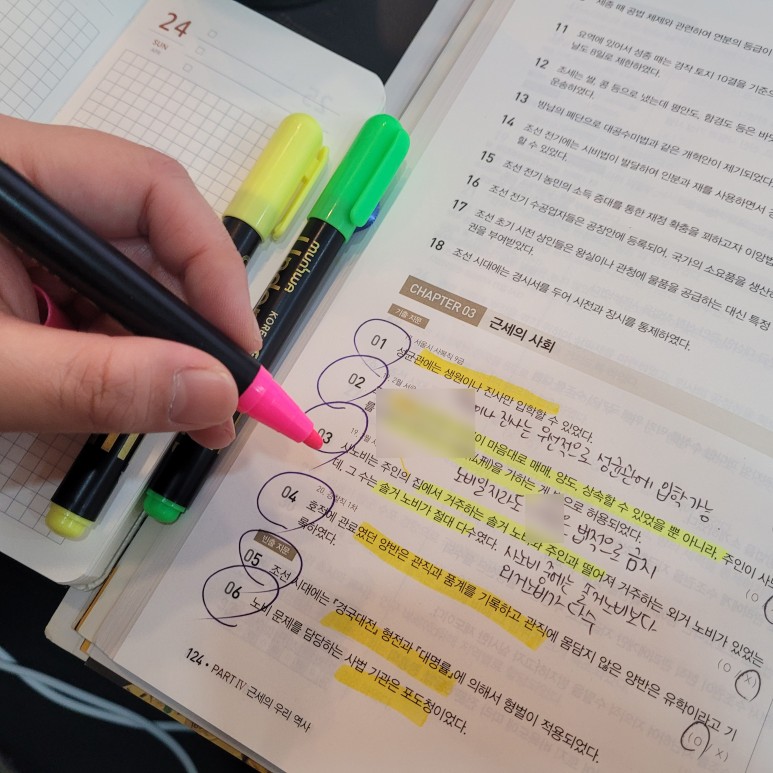 24
SUN
munhwa
KORE
체종 때 공법 체제와 관련하여 연분의 등급이
11 요역에 있어서 성종 때는 경작 토지 10결을 기준으
날도 8일로 제한하였다.
12 조세는 쌀, 콩 등으로 냈는데 평안도, 함경도 등은 바
운송하였다.
13 방납의 폐단으로 대공수미법과 같은 개혁안이 제기되었다
14 조선 전기에는 시비법이 발달하여 인분과 재를 사용하면서
할 수 있었다.
15 조선 전기 농민의 소득 증대를 통한 재정 확충을 꾀하고자 이앙법
16 조선 전기 수공업자들은 공장안에 등록되어, 국가의 소요품을 생산
17 조선 초기 시전 상인들은 왕실이나 관청에 물품을 공급하는 대신 특정
권을 부여받았다.
18 조선 시대에는 경시서를 두어 시전과 장시를 통제하였다.
CHAPTER 03 근세의 사회
기출 지문
01 서울시 사복직 9급
성균관에는 생원이나 진사만 입학할 수 있었다.
02 2월 서
이나 진사는 우선적으로 성균관에 입학 가능
를 이 마음대로 매매, 양도, 상속할 수 있었을 뿐 아니라, 주인이 사
을 가하는 것 으로 허용되었다.
노비일지라도 은 법적으로 금지
03 19
사노비는 주인의 집에서 거주하는 솔거 노비와 주인과 떨어져 거주하는 외거 노비가 있었는
데, 그 수는 솔거 노비가 절대 다수였다. 사노비 중에는 솔거노비보다
외거노비가 다수
(O X)
04 20. 1차
호적에 관료였던 양반은 관직과 품계를 기록하고 관직에 몸담지 않은 양반은 유학이라고 기
록하였다.
(O / X)
빈출 지문
05 조선 시대에는 『경국대전』 형전과 『대명률』에 의해서 형벌이 적용되었다.
06 노비 문제를 담당하는 사법 기관은 포도청이었다.
124 • PART IV 근세의 우리 역사